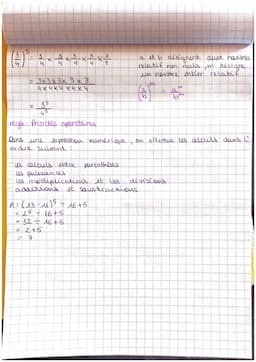 (3/4)^5 = 3/4 × 3/4 × 3/4 × 3/4 × 3/4
= 3×3×3×3×3 / 4×4×4×4×4
= 3^5 / 4^5
a et b désignent deux nombres
relatif non nuls, m désigne
un nombre entier relatif
(a/b)^m = a^m / b^m
règle: Priorités opératoires
Dans une expression numérique, on effectue les calculs dans l'
ordre suivant.
les calculs entre parenthèses
les puissances
les multiplications et les divisions
additions et soustractions
A = (13 - 11)^5 ÷ 16 + 5
= 2^5 ÷ 16 + 5
= 32 ÷ 16 + 5
= 2 + 5
= 7